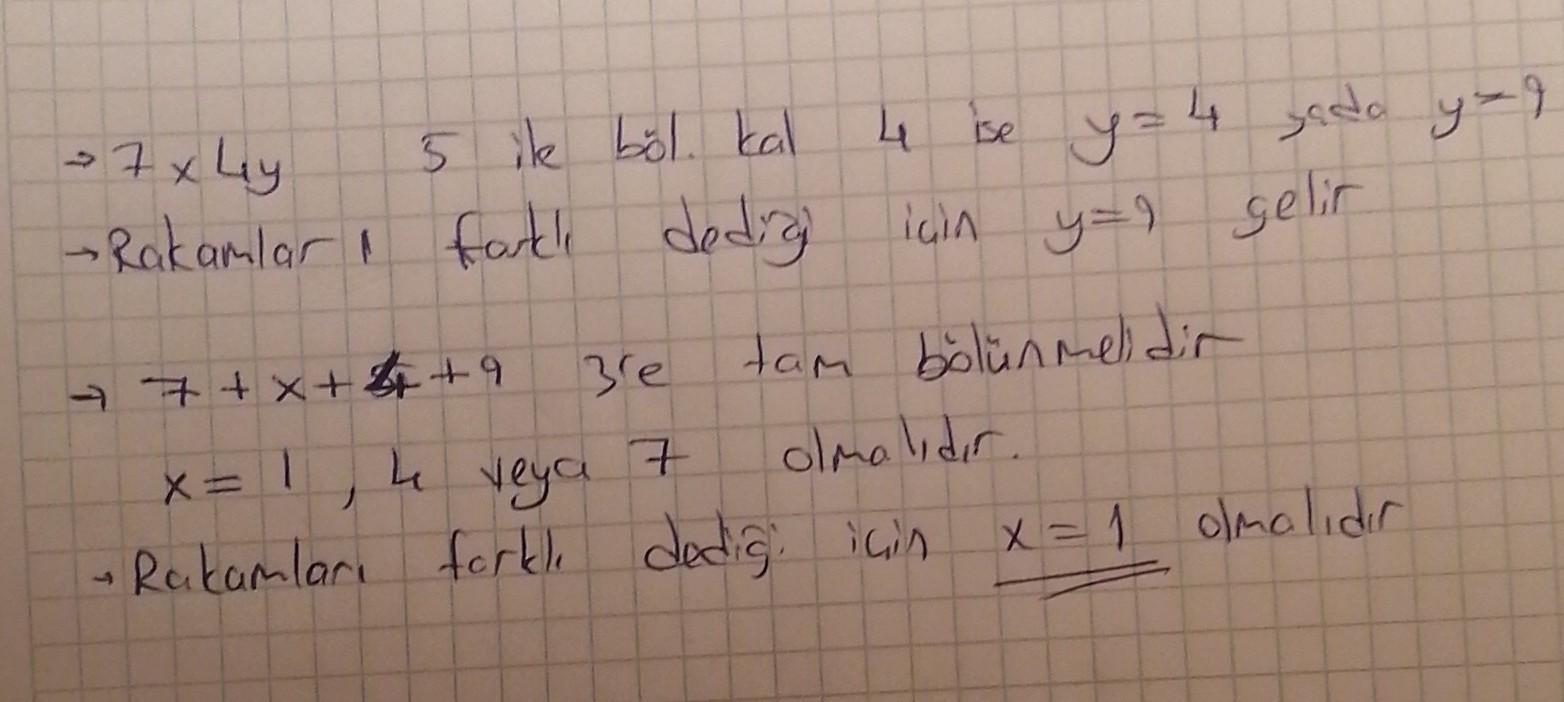 → 7x4y 5 ile böl. kal 4 ise y=4 yada y=9
→ Rakamları farklı dediği için y=9 gelir
→ 7+x+4+9 3'e tam bölünmelidir
x=1, 4 veya 7 olmalıdır.
→ Rakamları farklı dediği için x=1 olmalıdır